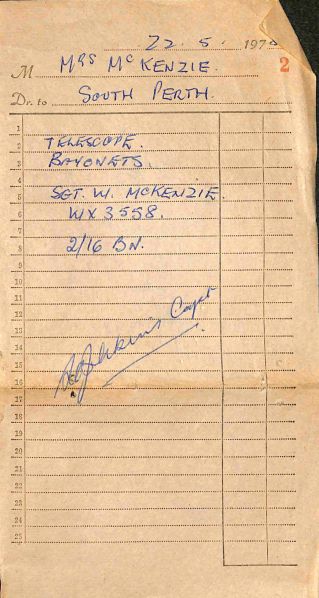 22. 5. 197
M Mrs McKENZIE.
2
Dr. to SOUTH PERTH.
1
2 TELESCOPE.
3 BAYONETS.
4
5 SGT. W. McKENZIE.
6 WX3558.
7
8 2/16 BN.
9
10
11
12
13
14
15
16
17
18
19
20
21
22
23
24
25